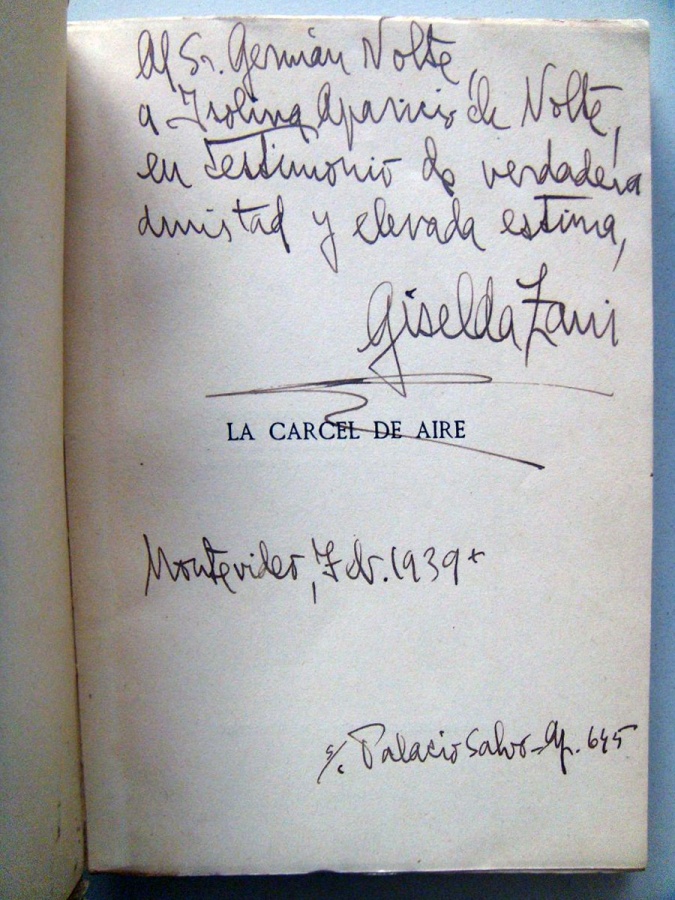 Al Sr. Germán Nolte,
a Isolina Aparicio de Nolte,
en testimonio de verdadera
amistad y elevada estima,
Giselda Zani
LA CARCEL DE AIRE
Montevideo, Feb. 1939+
s/c Palacio Salvo - Ap. 645